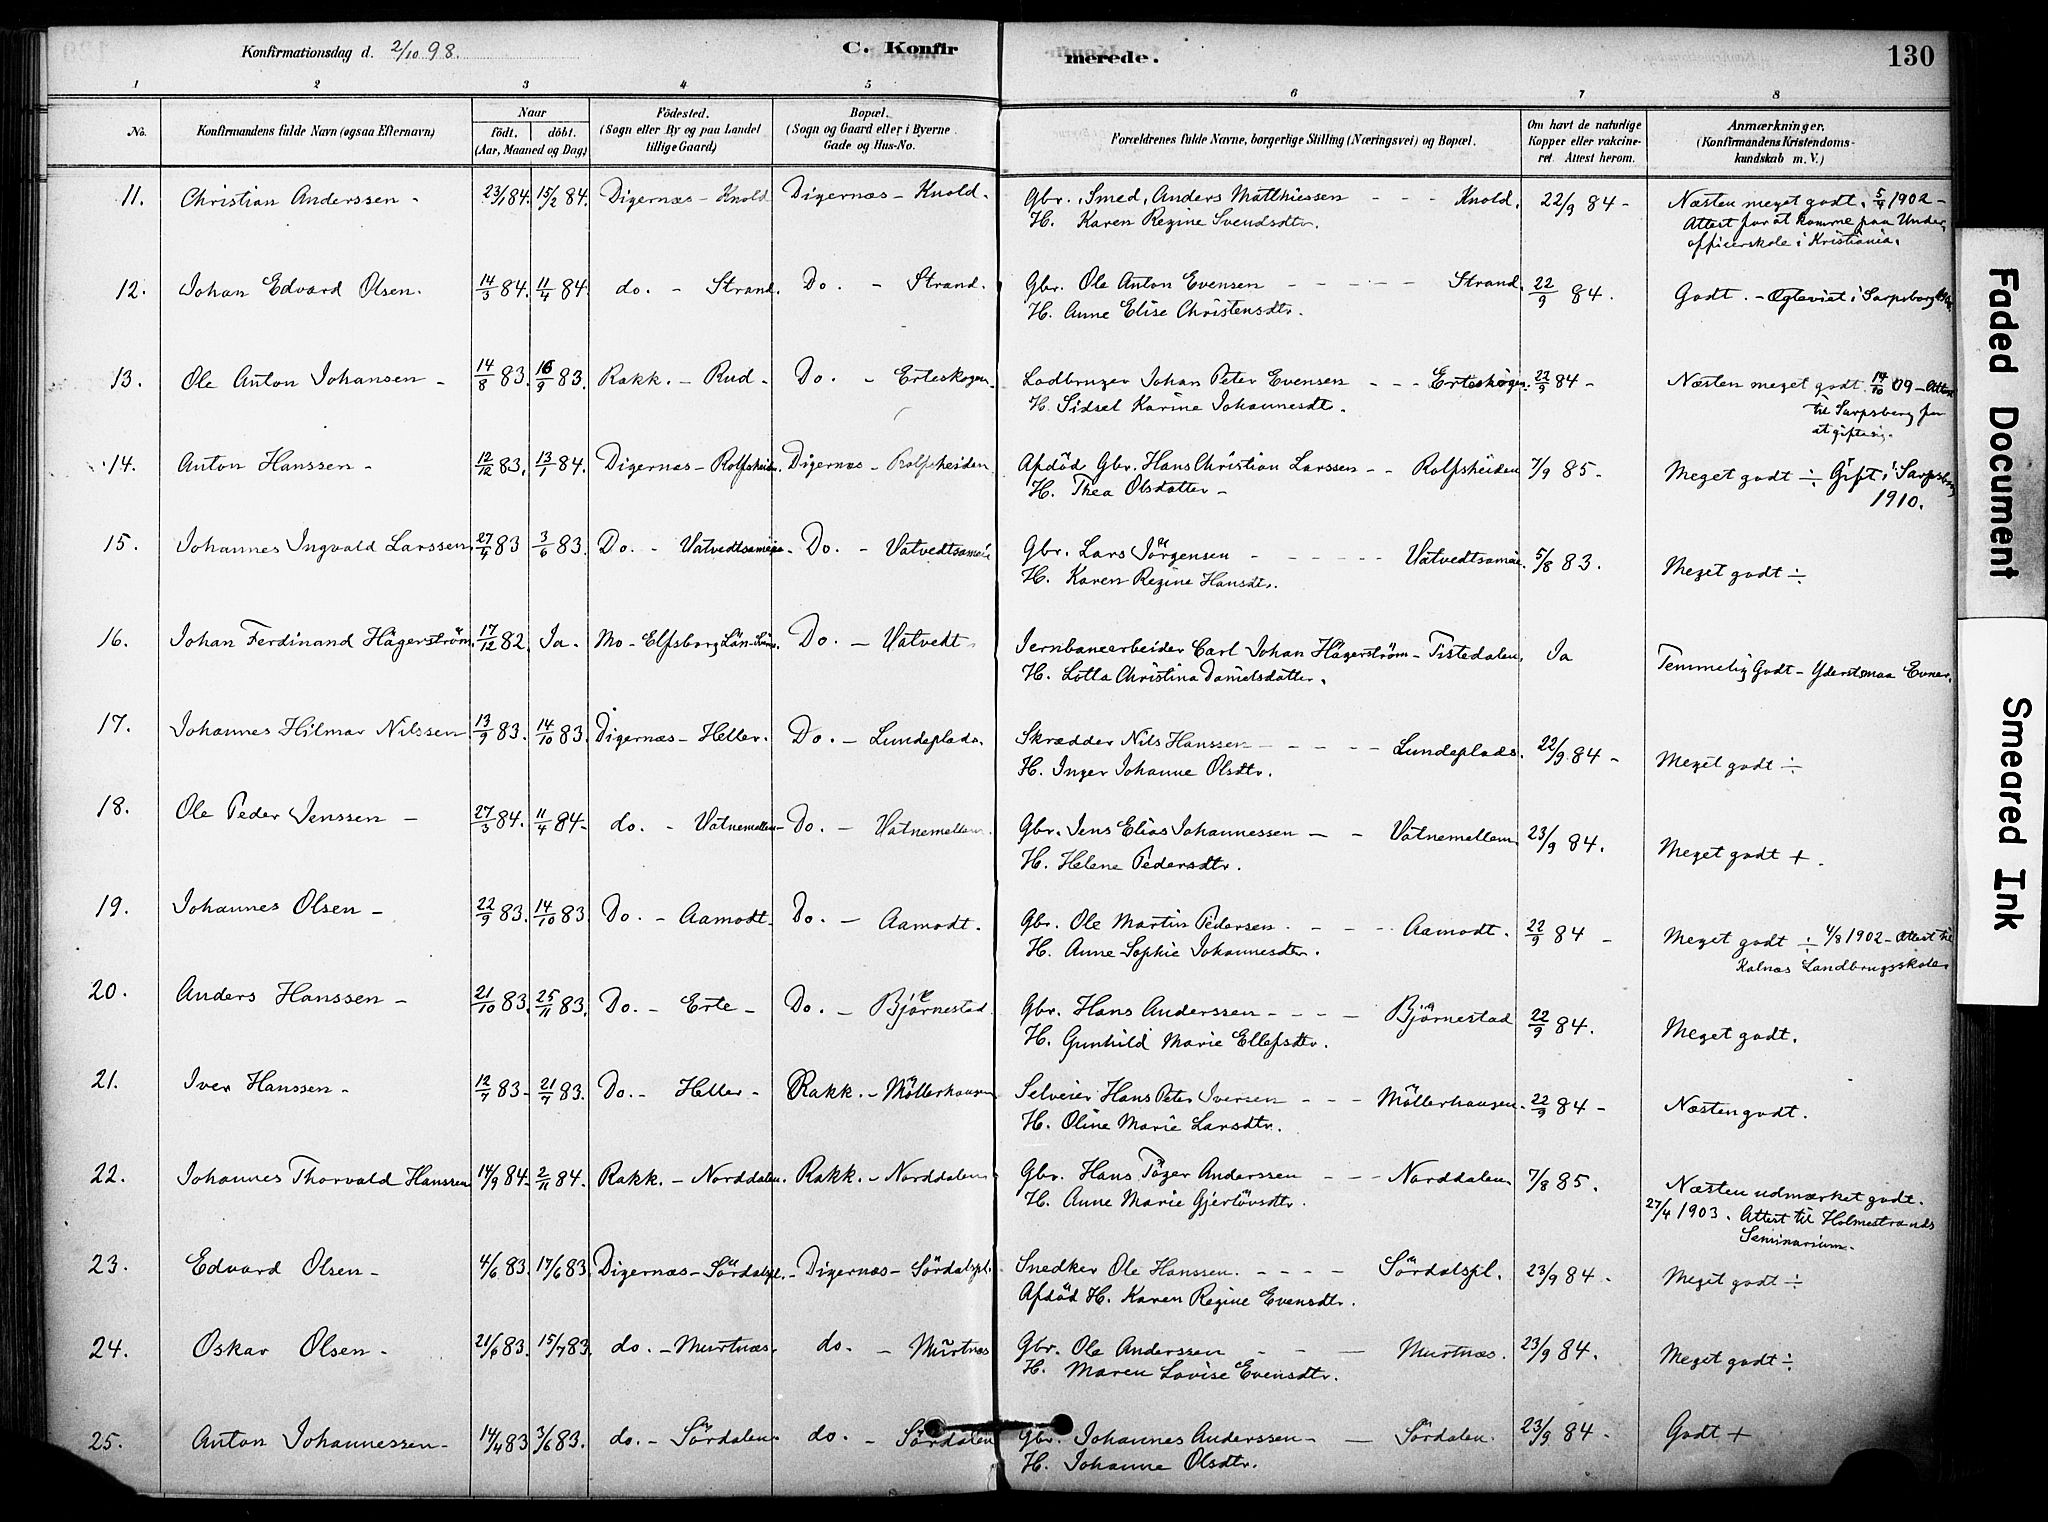 Konfirmationsdag d. 2/10 98.
C. Konfirmerede.
130
1 2 3 4 5 6 7 8
No.
Konfirmandens fulde Navn (ogsaa Efternavn)
Naar
födt. döbt.
(Aar, Maaned og Dag)
Födested.
(Sogn eller By og paa Landet
tillige Gaard)
Bopæl.
(Sogn og Gaard eller i Byerne
Gade og Hus-No.
Forældrenes fulde Navne, borgerlige Stilling (Næringsvei) og Bopæl.
Om havt de naturlige
Kopper eller vakcine-
ret. Attest herom.
Anmærkninger.
(Konfirmandens Kristendoms-
kundskab m. V.)
11. Christian Anderssen - 23/1 84. 15/2 84. Digernæs - Knold Digernæs - Knold. Gbr., Smed, Anders Matthiessen - - - Knold. 22/9 84 - Næsten meget godt. 5/4 1902 -
H. Karen Regine Svendsdtr. Attest for at komme paa Under
officerskole i Kristiania.
12. Johan Edvard Olsen. 14/3 84. 11/4 84. do. - Strand. Do. - Strand. Gbr. Ole Anton Evensen - - - - - Strand. 22/9 84. Godt. - Egteviet i Sarpsborg
H. Anne Elise Christensdtr.
13. Ole Anton Johansen - 14/8 83. 16/9 83. Rakk. - Rud - Do. - Erteskogen. Johan Peter Evensen - - - Erteskogen. 22/9 84 - Næsten meget godt. 14/10 09 - Attest
H. Sidsel Karine Johannesdt. til Sarpsborg for
at gifte sig.
14. Anton Hanssen - 12/12 83. 13/1 84. Digernæs - Rolfsheiden. Digernæs - Rolfsheiden. Afdöd Gbr. Hans Christian Larssen - - Rolfsheiden 7/9 85 - Meget godt ÷ Gift i Sarpsborg
H. Thea Olsdatter - 1910.
15. Johannes Ingvald Larssen. 27/4 83 3/6 83. Do. - Vatvedtsameie - Do. - Vatvedtsameie Gbr. Lars Jörgensen - - - - - Vatvedtsameie. 5/8 83. Meget godt ÷
H. Karen Regine Hansdtr.
16. Johan Ferdinand Hägerström. 17/12 82. Ja - Mo - Elfsborg Län - Do. - Vatvedt - Jernbanearbeider Carl Johan Hägerström - Tistedalen. Ja Temmelig Godt - Yderst smaa Evner.
H. Lotta Christina Danielsdatter.
17. Johannes Hilmar Nilssen 13/9 83. 14/10 83. Digernæs - Heller. Do. - Lundeplads. Skrædder Nils Hanssen - - - - - Lundeplads. 22/9 84 - Meget godt ÷
H. Inger Johanne Olsdtr.
18. Ole Peder Jenssen - 27/3 84. 11/4 84 - do. - Vatnemellem - Do. - Vatnemellem. Gbr. Jens Elias Johannessen - - Vatnemellem. 23/9 84. Meget godt +.
H. Helene Pedersdtr.
19. Johannes Olsen - 22/9 83. 14/10 83. Do. - Aamodt. Do. - Aamodt. Gbr. Ole Martin Pedersen. - - - Aamodt. 22/9 84 - Meget godt ÷ 4/8 1902 - Attest til
H. Anne Sophie Johannesdtr. Kalnæs Landbrugsskole.
20. Anders Hanssen - 21/10 83. 25/11 83. Do. - Erte - Do. - Björnestad. Gbr. Hans Anderssen - - - - Björnestad 22/9 84. Meget godt.
H. Gunhild Marie Ellefsdtr.
21. Iver Hanssen - 12/7 83 - 21/7 83. Do. - Heller - Rakk. - Möllerhaugen Selveier Hans Peter Iversen - - - Möllerhaugen. 22/9 84 - Næsten godt.
H. Oline Marie Larsdtr.
22. Johannes Thorvald Hanssen 14/9 84 - 2/11 84. Rakk. - Norddalen. Rakk. - Norddalen Gbr. Hans Töger Anderssen - - - Norddalen. 7/8 85. Næsten udmærket godt.
H. Anne Marie Gjerlövsdtr. 27/4 1903. Attest til Holmestrands
Seminarium.
23. Edvard Olsen - 4/6 83. 17/6 83. Digernæs - Sördalspl. - Digernæs - Sördalspl. Snedker Ole Hanssen. - - - - Sördalspl. 23/9 84 - Meget godt ÷
Afdöd H. Karen Regine Evensdtr.
24. Oskar Olsen - 21/6 83. 15/7 83. do. - Murtnæs. do. - Murtnæs Gbr. Ole Anderssen - - - Murtnæs. 23/9 84. Meget godt ÷
H. Maren Lovise Evensdtr.
25. Anton Johannessen - 14/4 83 3/6 83. do. - Sördalen. do. - Sördalen Gbr. Johannes Anderssen - - Sördalen. 23/9 84 - Godt +
H. Johanne Olsdtr.
Faded Document
Smeared Ink